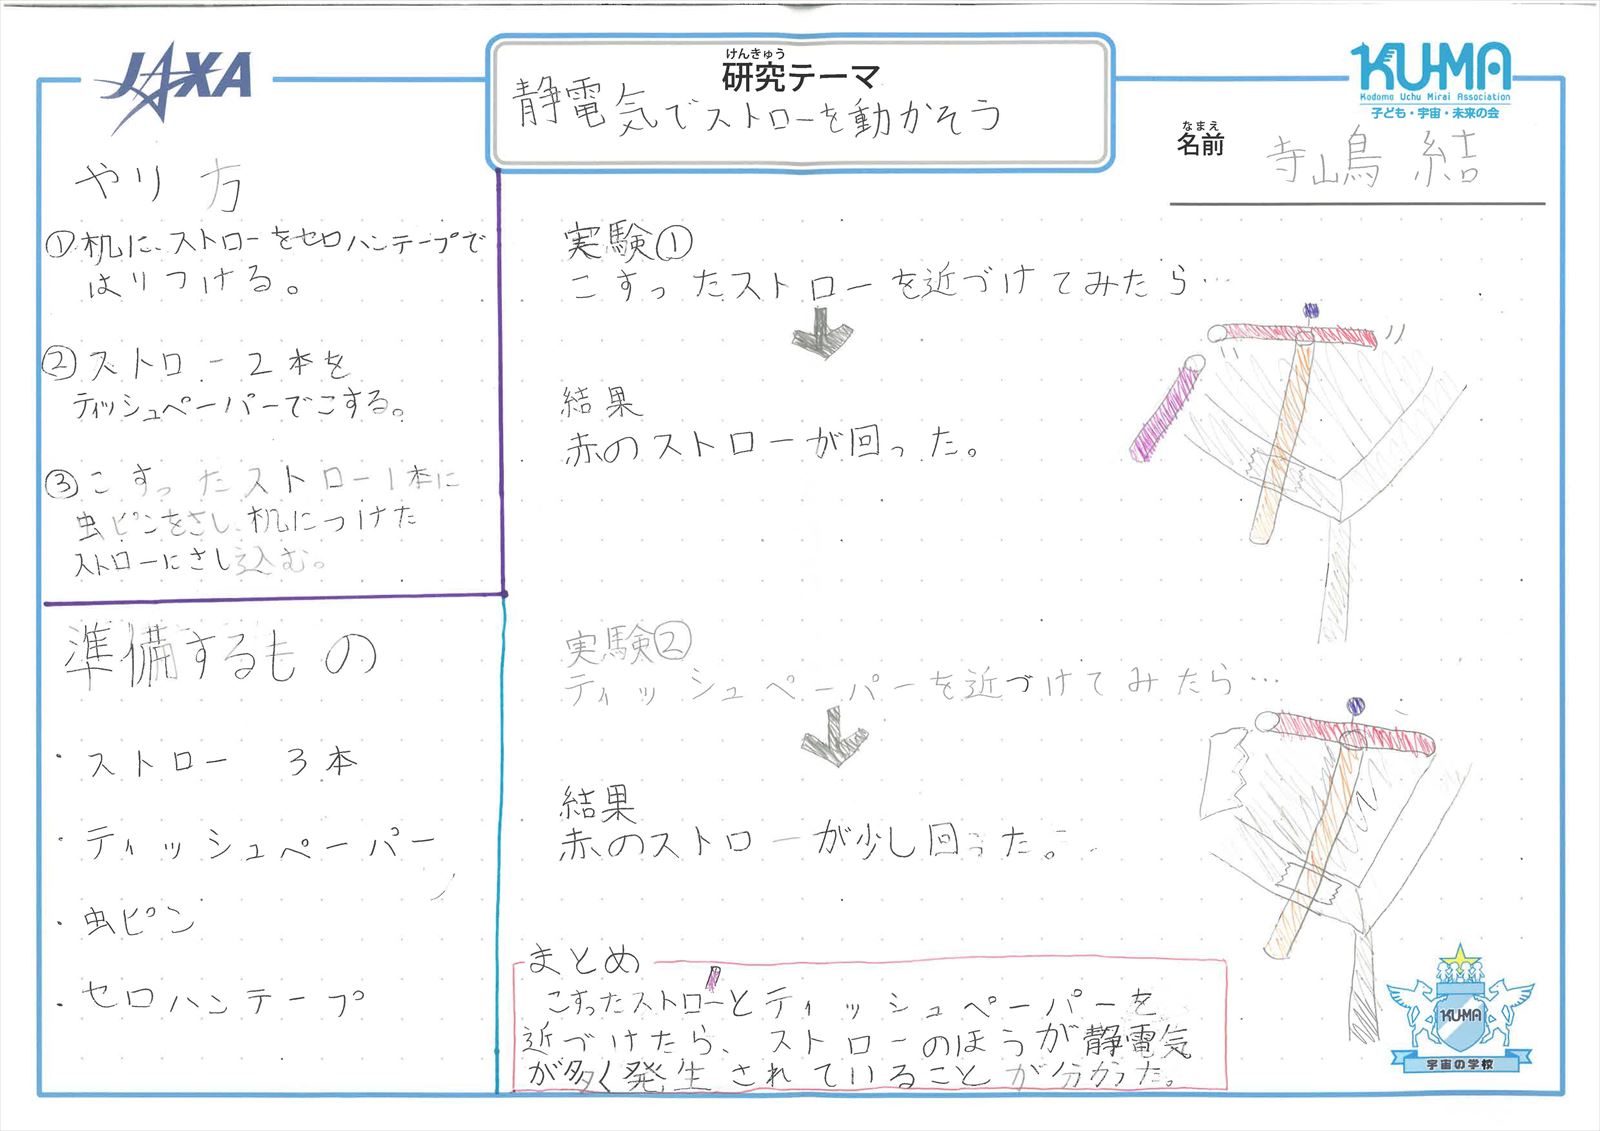 JAXA
けんきゅう
研究テーマ
静電気でストローを動かそう
KU-MA
Kodomo Uchu Mirai Association
子ども・宇宙・未来の会
なまえ
名前
寺嶋 結
やり方
①机に、ストローをセロハンテープで
はりつける。
②ストロー2本を
ティッシュペーパーでこする。
③こすったストロー1本に
虫ピンをさし、机につけた
ストローにさし込む。
準備するもの
・ストロー 3本
・ティッシュペーパー
・虫ピン
・セロハンテープ
実験①
こすったストローを近づけてみたら…
結果
赤のストローが回った。
実験②
ティッシュペーパーを近づけてみたら…
結果
赤のストローが少し回った。
まとめ
こすったストローとティッシュペーパーを
近づけたら、ストローのほうが静電気
が多く発生されていることが分かった。
KUMA
宇宙の学校